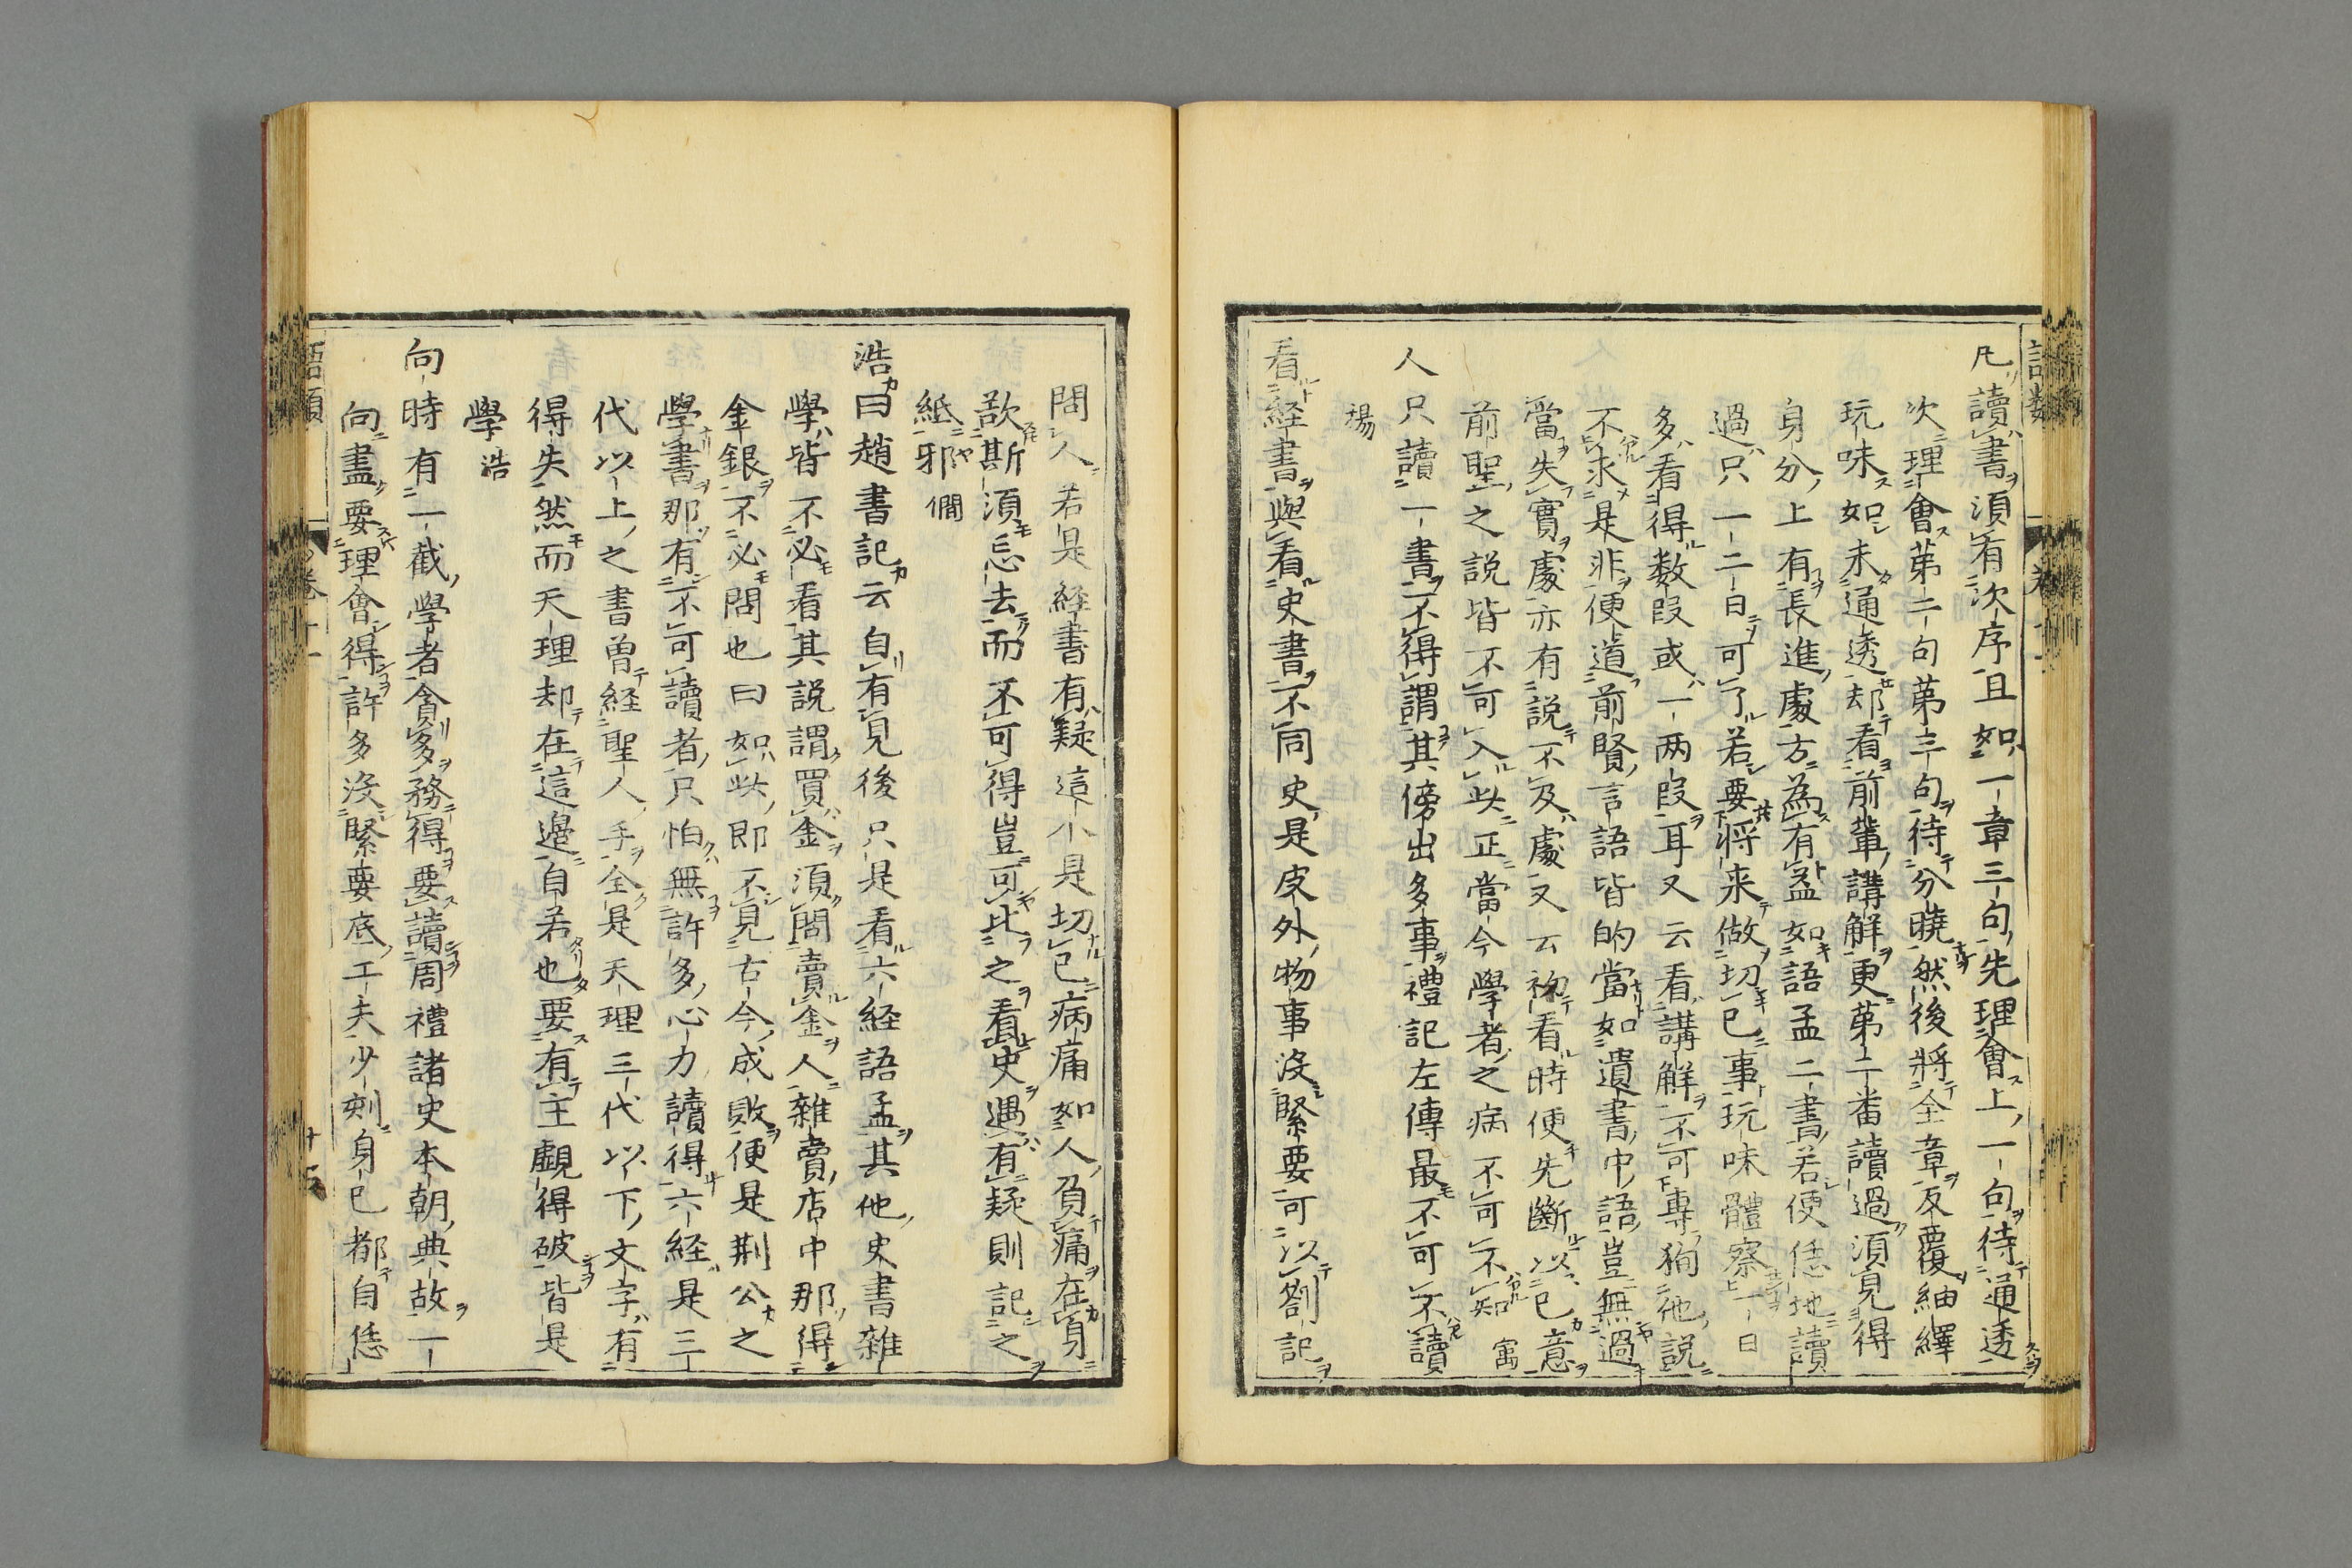 凡讀書須有次序且如一章三句先理會上一句待通透
次理會第二句第三句待分曉然後將全章反覆紬繹
玩味如未通透却看前輩講解更第二番讀過須見得
身分上有長進處方為有益如語孟二書若便恁地讀
過只一二日可了若要將来做切己事玩味體察一日
多看得数段或一两段耳又云看講解不可專狥他說
不求是非便道前賢言語皆的當如遺書中語豈無過
當失實處亦有説不及處又云初看時便先斷以己意
前聖之説皆不可入此正當今學者之病不可不知 㝢
人只讀一書不得謂其傍出多事禮記左傳最不可不讀
揚
看経書與看史書不同史是皮外物事没緊要可以劄記
問人若是経書有疑這个是切己病痛如人負痛在身
欲斯須忘去而不可得豈可比之看史遇有疑則記之
紙邪 僩
浩曰趙書記云自有見後只是看六経語孟其他史書雜
學皆不必看其説謂買金須問賣金人雜賣店中那得
金銀不必問也曰如此即不見古今成敗便是荆公之
學書那有不可讀者只怕無許多心力讀得六経是三
代以上之書曽経聖人手全是天理三代以下文字有
得失然而天理却在這邊自若也要有主覷得破皆是
學 浩
向時有一截學者貪多務得要讀周禮諸史本朝典故一
向盡要理會得許多没緊要底工夫少刻身己都自恁
語類
卷十一
十五